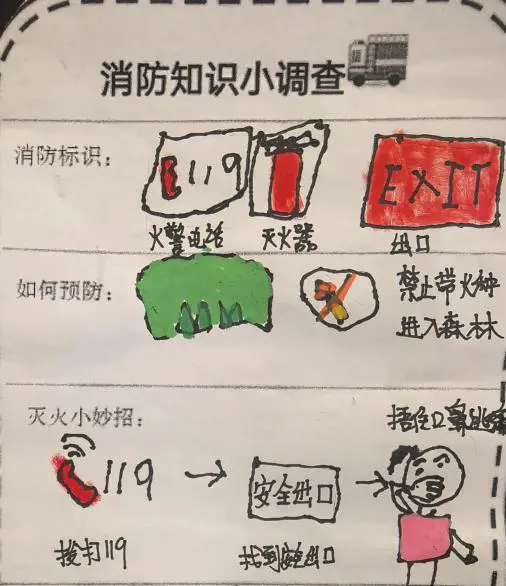 消防知识小调查
消防标识：
119
EXIT
火警电话
灭火器
出口
如何预防：
禁止带火种
进入森林
灭火小妙招：
捂住口鼻逃
119
安全出口
拨打119
找到安全出口